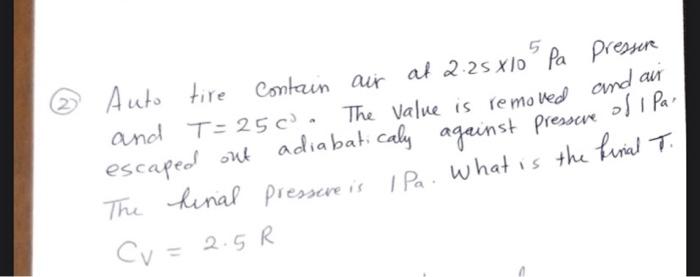 ② Auto tire Contain air at 2.25 X10⁵ Pa Pressure
and T= 25 C°. The Value is removed and air
escaped out adiabaticaly against Pressure of 1 Pa.
The final Pressure is 1 Pa. What is the final T.
Cv = 2.5 R